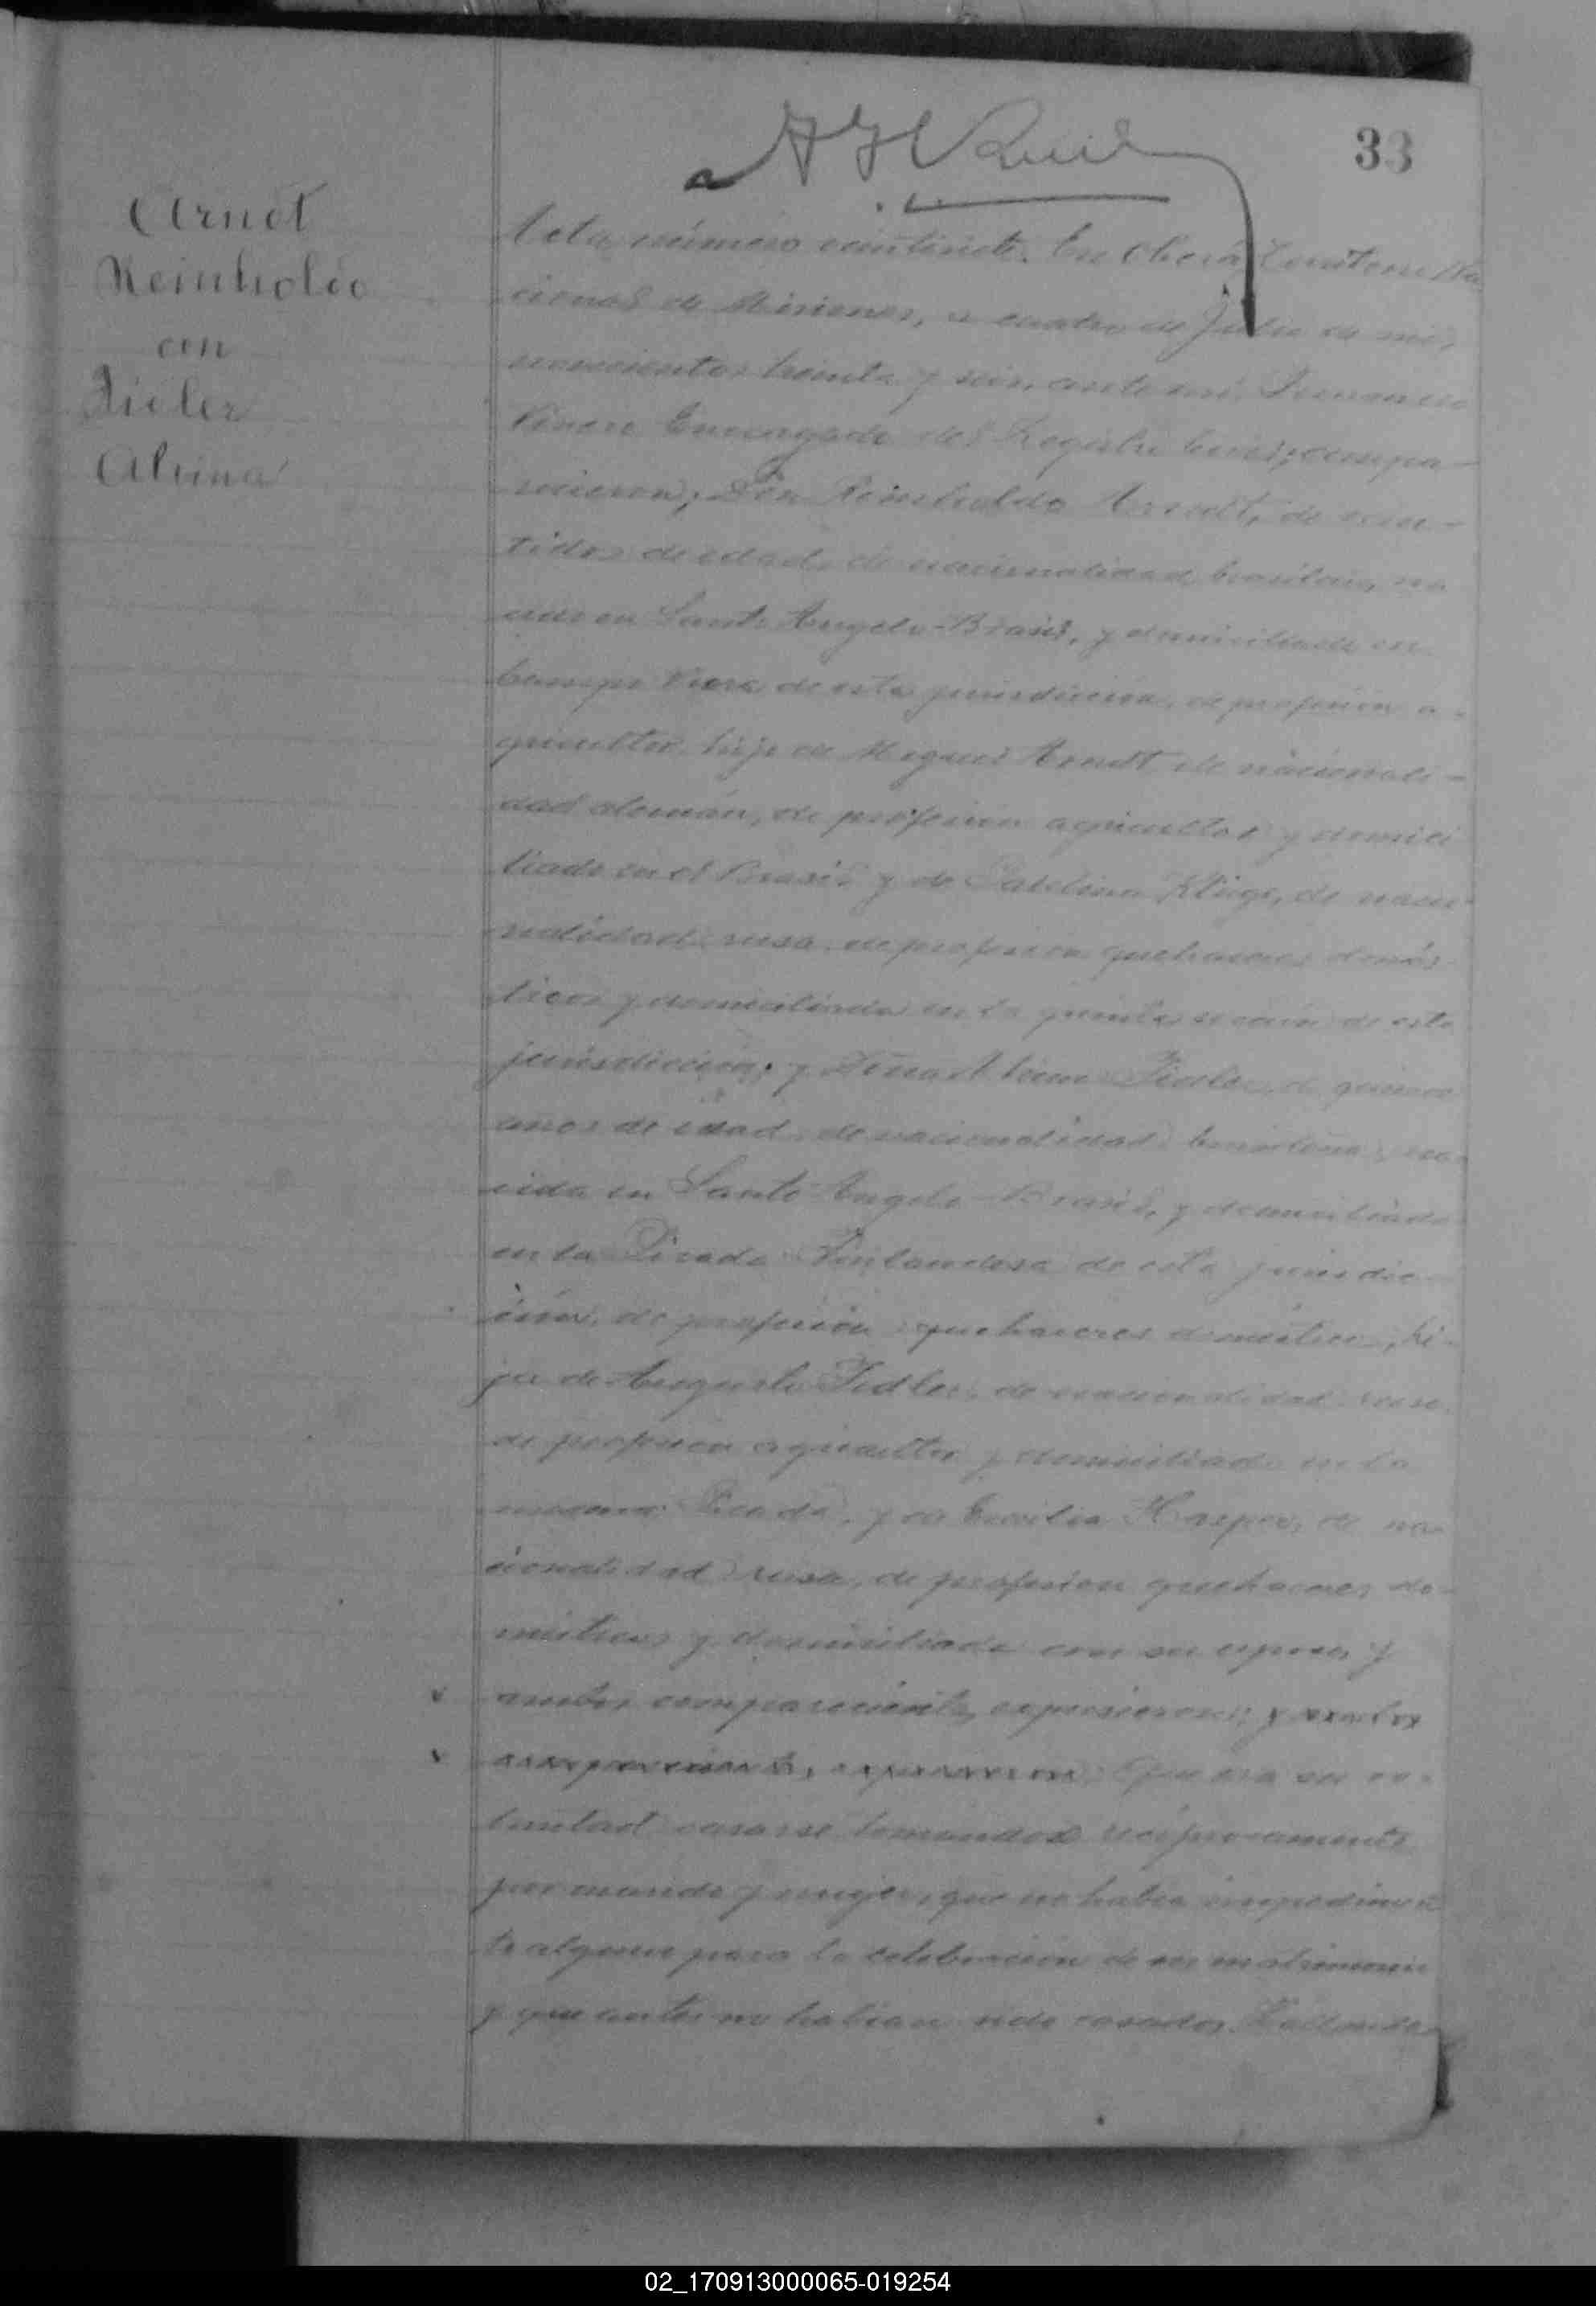 33
Arndt
Reinholdo
con
Fidler
Alvina
Acta número veintisiete. En Oberá, Territorio Na
cional de Misiones, a cuatro de Julio de mil
novecientos treinta y seis, ante mí,
Encargado del Registro Civil, compa-
recieron; Don Reinholdo Arndt, de vein-
tidos de edad, de nacionalidad brasileña, na
cido en Santo Angelo-Brasil, y domiciliado en
Campo Viera de esta jurisdicción, de profesión a-
gricultor, hijo de Miguel Arndt de nacionali-
dad alemán, de profesión agricultor y domici
liado en el Brasil y de Kluge, de nacio-
nalidad rusa, de profesión quehaceres domés
ticos y domiciliada en la quinta sección de esta
jurisdicción; y Doña Alvina Fidler de quince
años de edad, de nacionalidad brasileña, na-
cida en Santo Angelo-Brasil, y domiciliada
en la Picada Finlandesa de esta jurisdic
ción, de profesión quehaceres domésticos, hi-
ja de Augusto Fidler, de nacionalidad ruso,
de profesión agricultor y domiciliado en la
misma Picada, y de Emilia Hasper, de na-
cionalidad rusa, de profesión quehaceres do-
mésticos y domiciliada con su esposo, y
ambos comparecientes, expusieron; y ambos
comparecientes, expusieron: Que era su vo-
luntad casarse tomandose recíprocamente
por marido y mujer, que no había impedimen
to alguno para la celebración de su matrimonio
y que antes no habían sido casados.
02_170913000065-019254